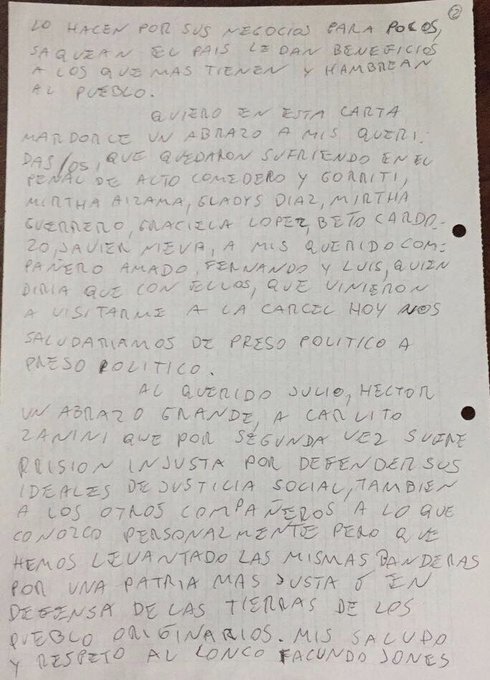 2
LO HACEN POR SUS NEGOCIOS PARA POCOS,
SAQUEAN EL PAIS LE DAN BENEFICIOS
A LOS QUE MAS TIENEN Y HAMBREAN
AL PUEBLO.
QUIERO EN ESTA CARTA
MARDORCE UN ABRAZO A MIS QUERI
DAS/OS, QUE QUEDARON SUFRIENDO EN EL
PENAL DE ALTO COMEDERO Y GORRITI,
MIRTHA AIZAMA, GLADYS DIAZ, MIRTHA
GUERRERO, GRACIELA LOPEZ, BETO CARDO
ZO, JAVIER NIEVA, A MIS QUERIDO COM-
PAÑERO AMADO, FERNANDO Y LUIS, QUIEN
DIRIA QUE CON ELLOS, QUE VINIERON
A VISITARME A LA CARCEL HOY NOS
SALUDARIAMOS DE PRESO POLITICO A
PRESO POLITICO.
AL QUERIDO JULIO, HECTOR
UN ABRAZO GRANDE, A CARLITO
ZANINI QUE POR SEGUNDA VEZ SUFRE
PRISION INJUSTA POR DEFENDER SUS
IDEALES DE JUSTICIA SOCIAL, TAMBIEN
A LOS OTROS COMPAÑEROS A LO QUE
CONOZCO PERSONALMENTE PERO QUE
HEMOS LEVANTADO LAS MISMAS BANDERAS
POR UNA PATRIA MAS JUSTA Ó EN
DEFENSA DE LAS TIERRAS DE LOS
PUEBLO ORIGINARIOS. MIS SALUDO
Y RESPETO AL LONCO FACUNDO JONES